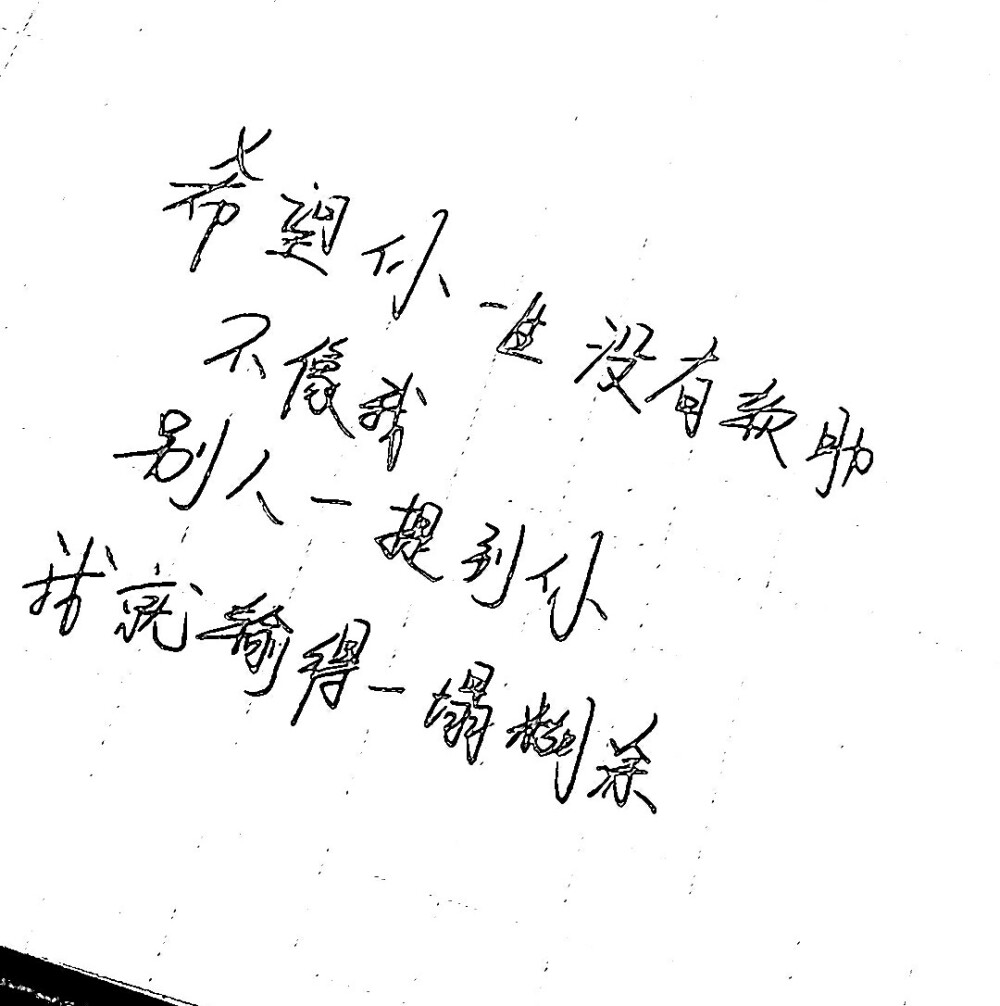 希望你一生没有软肋
不像我
别人一提到你
我就输得一塌糊涂